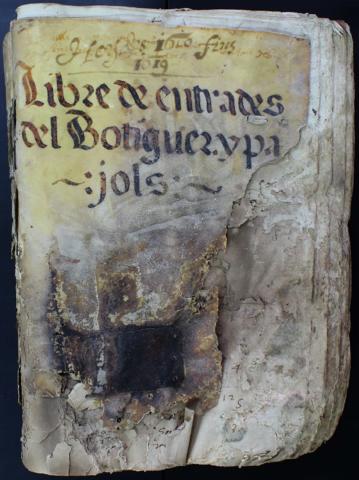 1610 fins
1619
Libre de entrades
del Botiguer.y pa
~:jols:~
125